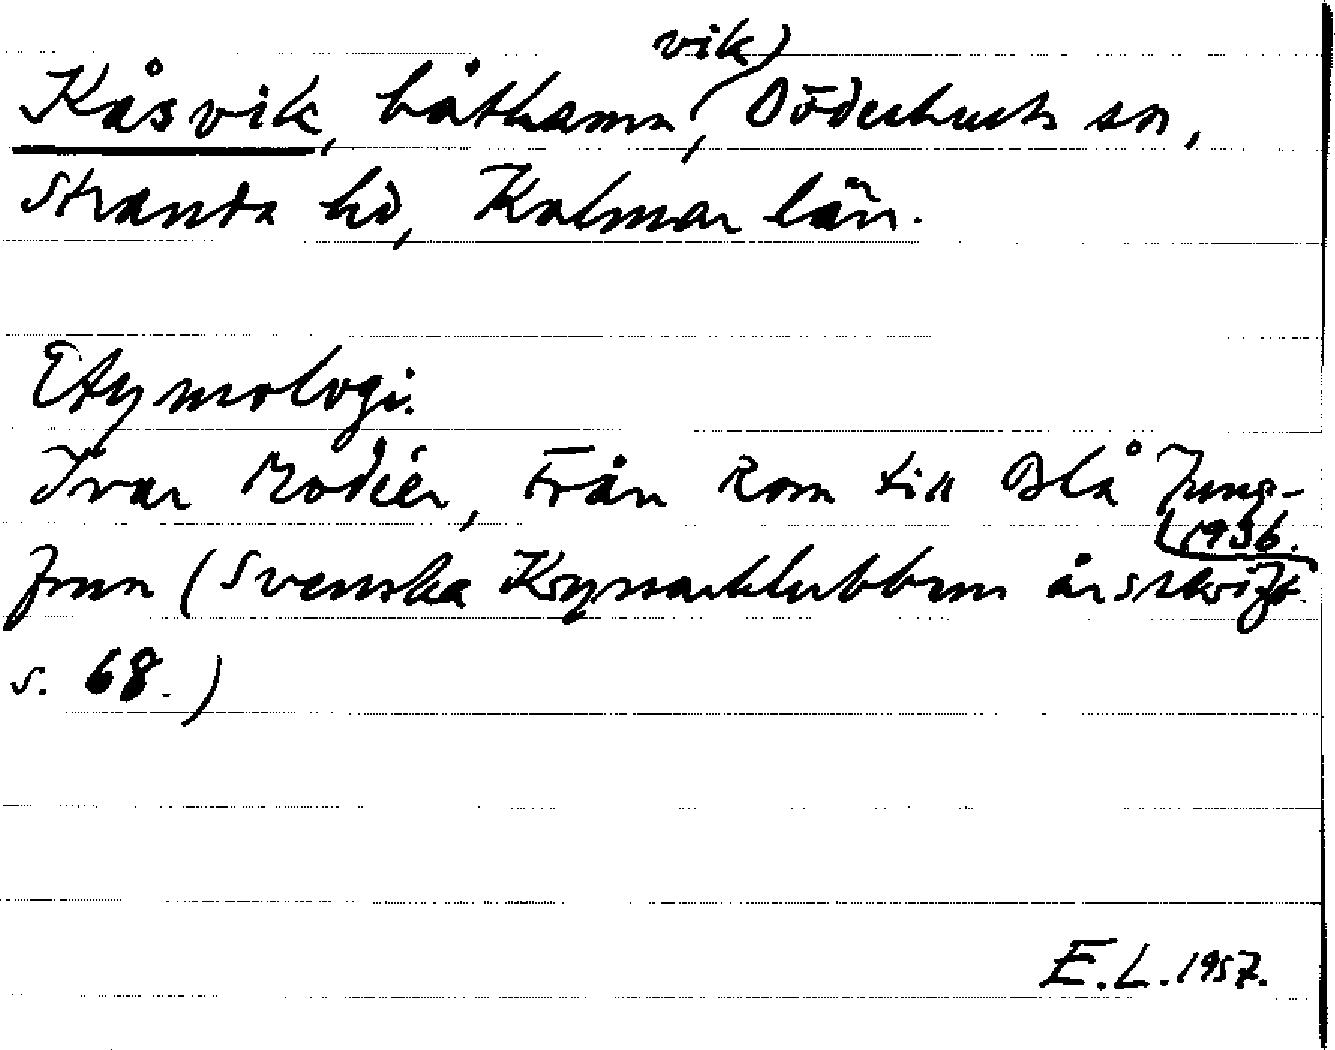 Kåsvik, båthamn, vik) Döderhults sn,
Stranda hd, Kalmar län.
Etymologi.
Ivar Modéer, Från Rom till Blå Jung-
frun (Svenska Kryssarklubbens årsskrift 1936.
s. 68.)
E.L. 1957.